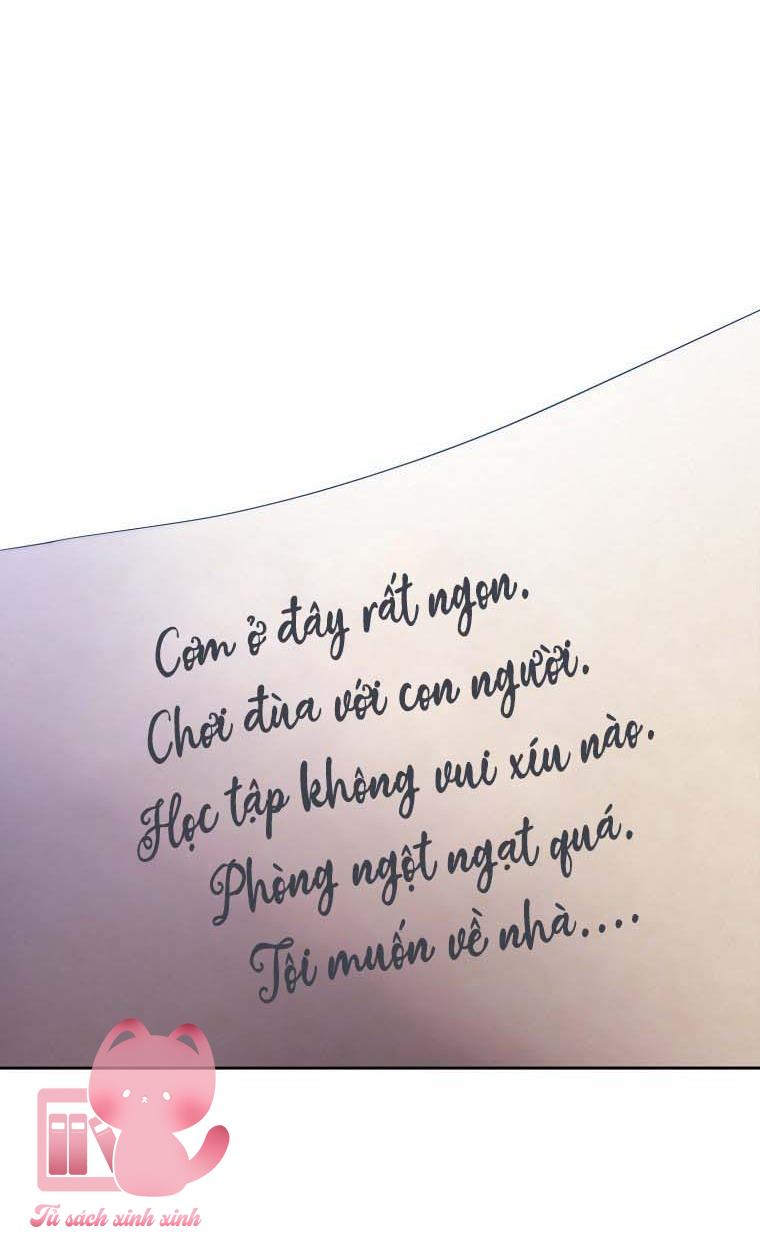 Cơm ở đây rất ngon.
Chơi đùa với con người.
Học tập không vui xíu nào.
Phòng ngột ngạt quá.
Tôi muốn về nhà....
Tủ sách xinh xinh